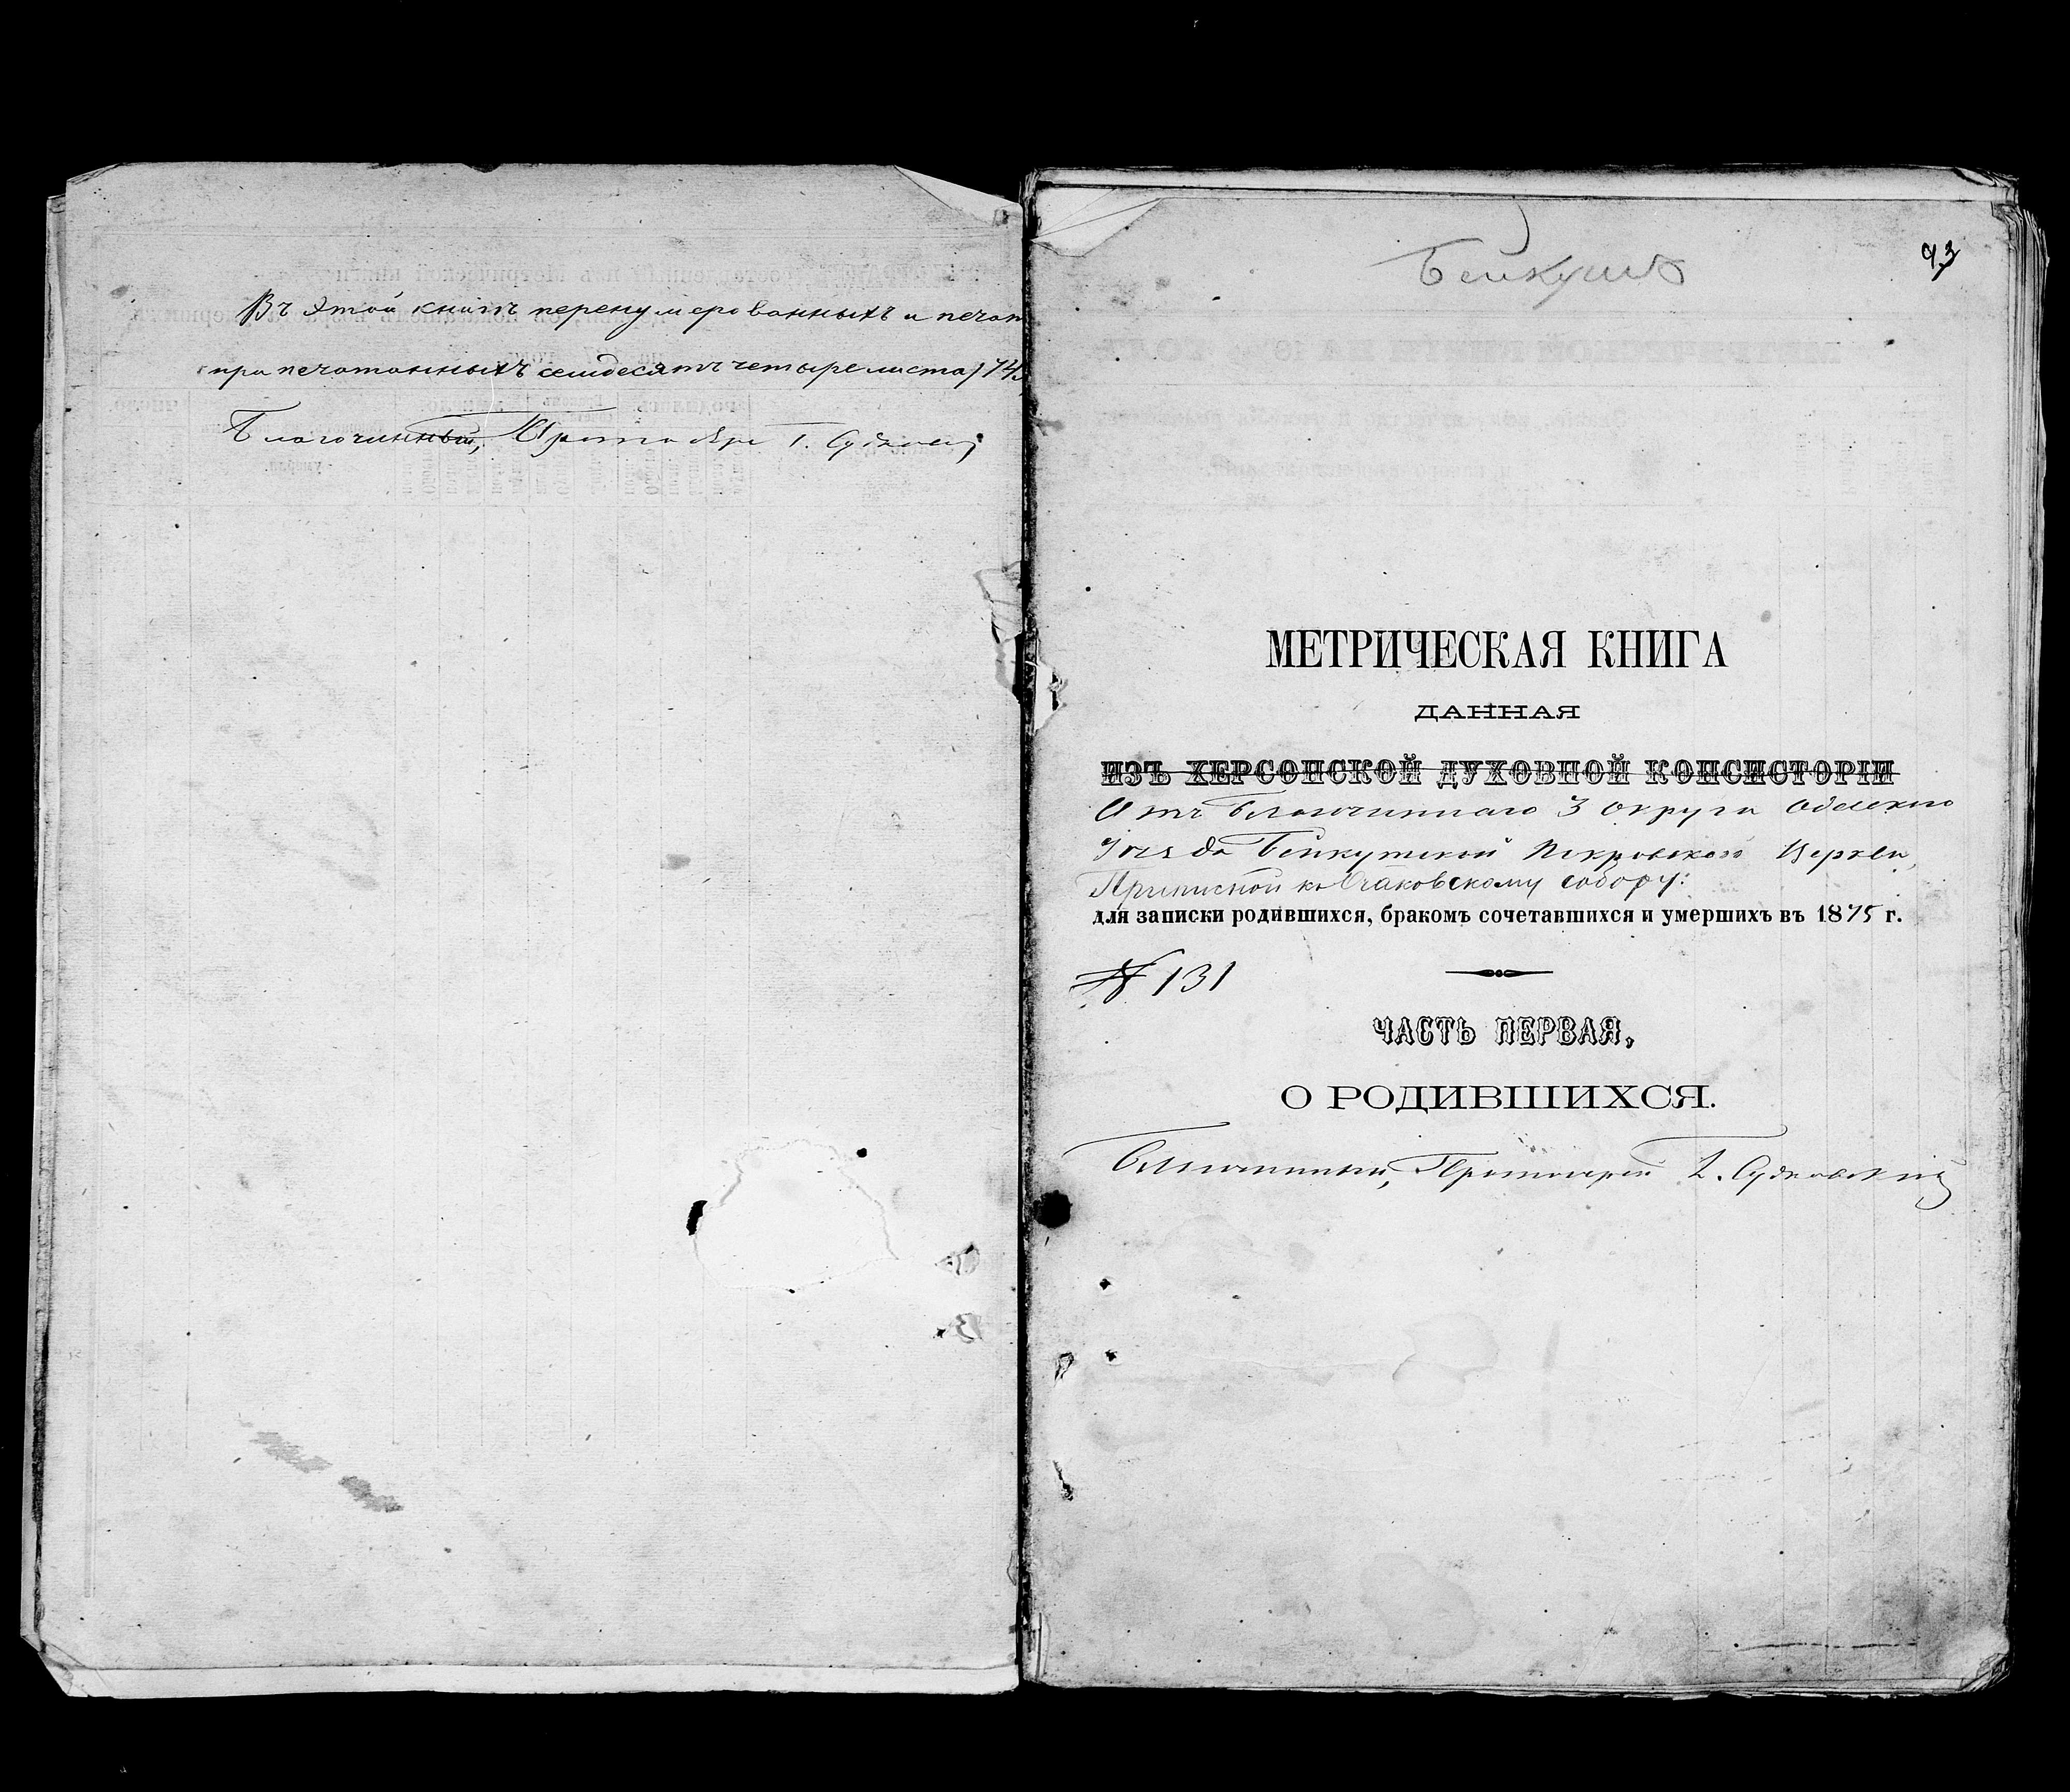 Въ этой книгѣ перенумерованныхъ и печат
припечатанныхъ семдесятъ четыре листа) 74
Благочинный, Протоіерей Г. Судковск
93
Бейкушъ
МЕТРИЧЕСКАЯ КНИГА
ДАННАЯ
ИЗЪ ХЕРСОНСКОЙ ДУХОВНОЙ КОНСИСТОРІИ
Отъ Благочиннаго 3 округа Одесскаго
Уѣзда Бейкушской Покровской Церкви,
Приписной къ Очаковскому собору:
для записки родившихся, бракомъ сочетавшихся и умершихъ въ 1875 г.
№ 131
ЧАСТЬ ПЕРВАЯ,
О РОДИВШИХСЯ.
Благочинный, Протоіерей Г. Судковскій